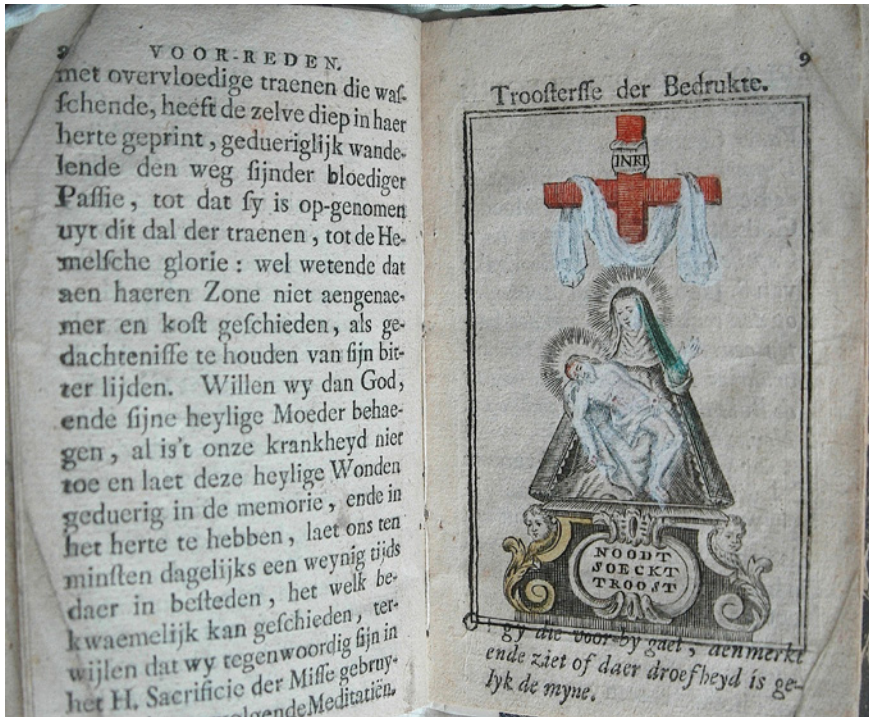 8 VOOR-REDEN.
met overvloedige traenen die waſ-
ſchende, heeft de zelve diep in haer
herte geprint, gedueriglijk wande-
lende den weg ſijnder bloediger
Paſſie, tot dat ſy is op-genomen
uyt dit dal der traenen, tot de He-
melſche glorie: wel wetende dat
aen haeren Zone niet aengenae-
mer en koſt geſchieden, als ge-
dachteniſſe te houden van ſijn bit-
ter lijden. Willen wy dan God,
ende ſijne heylige Moeder behae-
gen, al is't onze krankheyd niet
toe en laet deze heylige Wonden
geduerig in de memorie, ende in
het herte te hebben, laet ons ten
minſten dagelijks een weynig tijds
daer in beſteden, het welk be-
kwaemelijk kan geſchieden, ter-
wijlen dat wy tegenwoordig ſijn in
het H. Sacrificie der Miſſe gebruy-
volgende Meditatiën.
9
Trooſterſſe der Bedrukte.
INRI
NOODT
SOECKT
TROOST
gy die voor-by gaet, aenmerkt
ende ziet of daer droefheyd is ge-
lyk de myne.